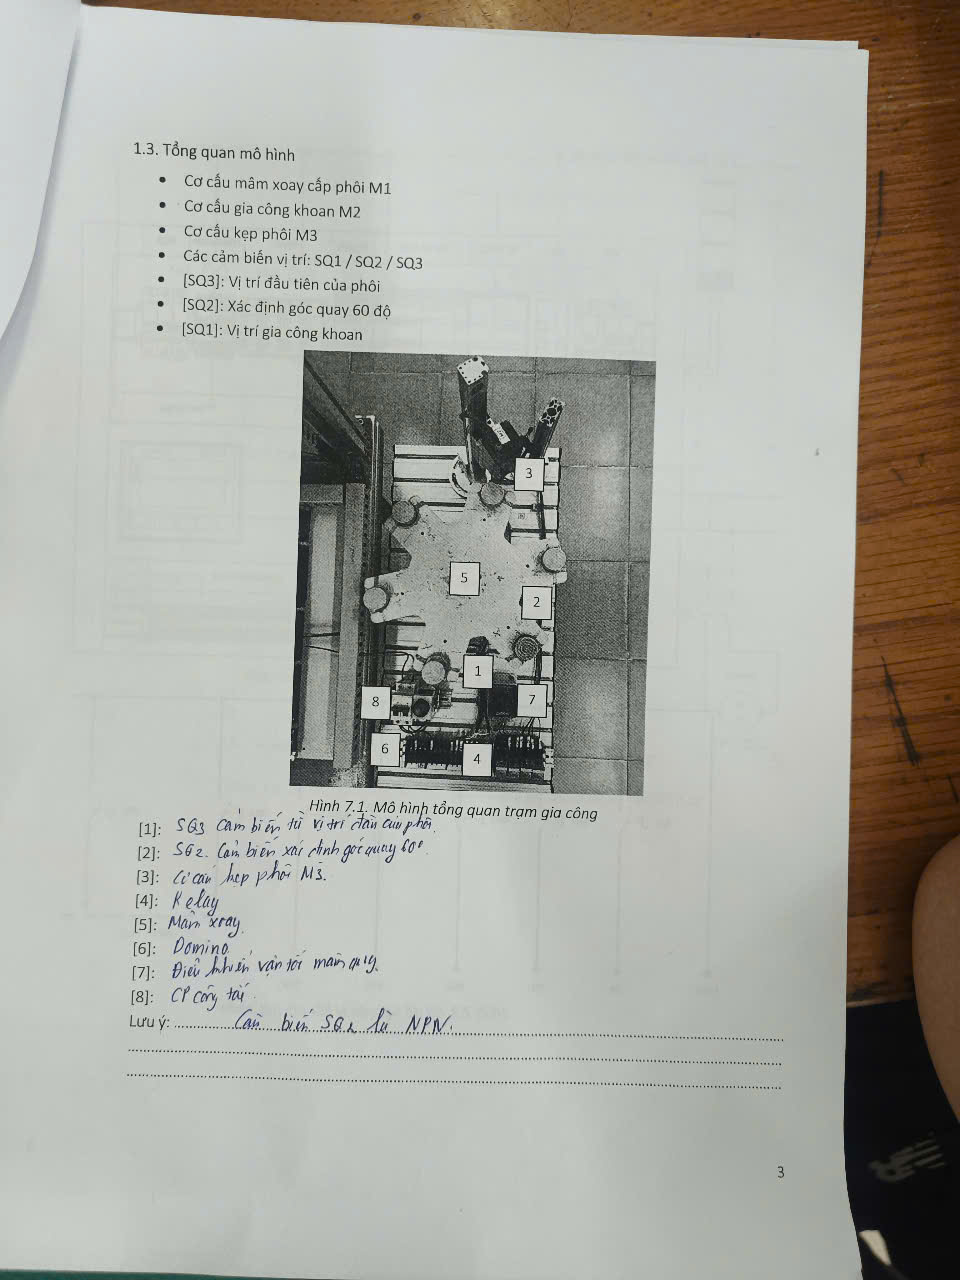 1.3. Tổng quan mô hình
• Cơ cấu mâm xoay cấp phôi M1
• Cơ cấu gia công khoan M2
• Cơ cấu kẹp phôi M3
• Các cảm biến vị trí: SQ1 / SQ2 / SQ3
• [SQ3]: Vị trí đầu tiên của phôi
• [SQ2]: Xác định góc quay 60 độ
• [SQ1]: Vị trí gia công khoan
3
5
2
1
8
7
6
4
Hình 7.1. Mô hình tổng quan trạm gia công
[1]: SQ3 Cảm biến từ vị trí đầu của phôi.
[2]: SQ2. Cảm biến xác định góc quay 60°.
[3]: Cơ cấu kẹp phôi M3.
[4]: Relay
[5]: Mâm xoay.
[6]: Domino
[7]: Điều khiển vận tốc mâm quay.
[8]: CP công tắc.
Lưu ý: Cảm biến SQ2 là NPN.
3